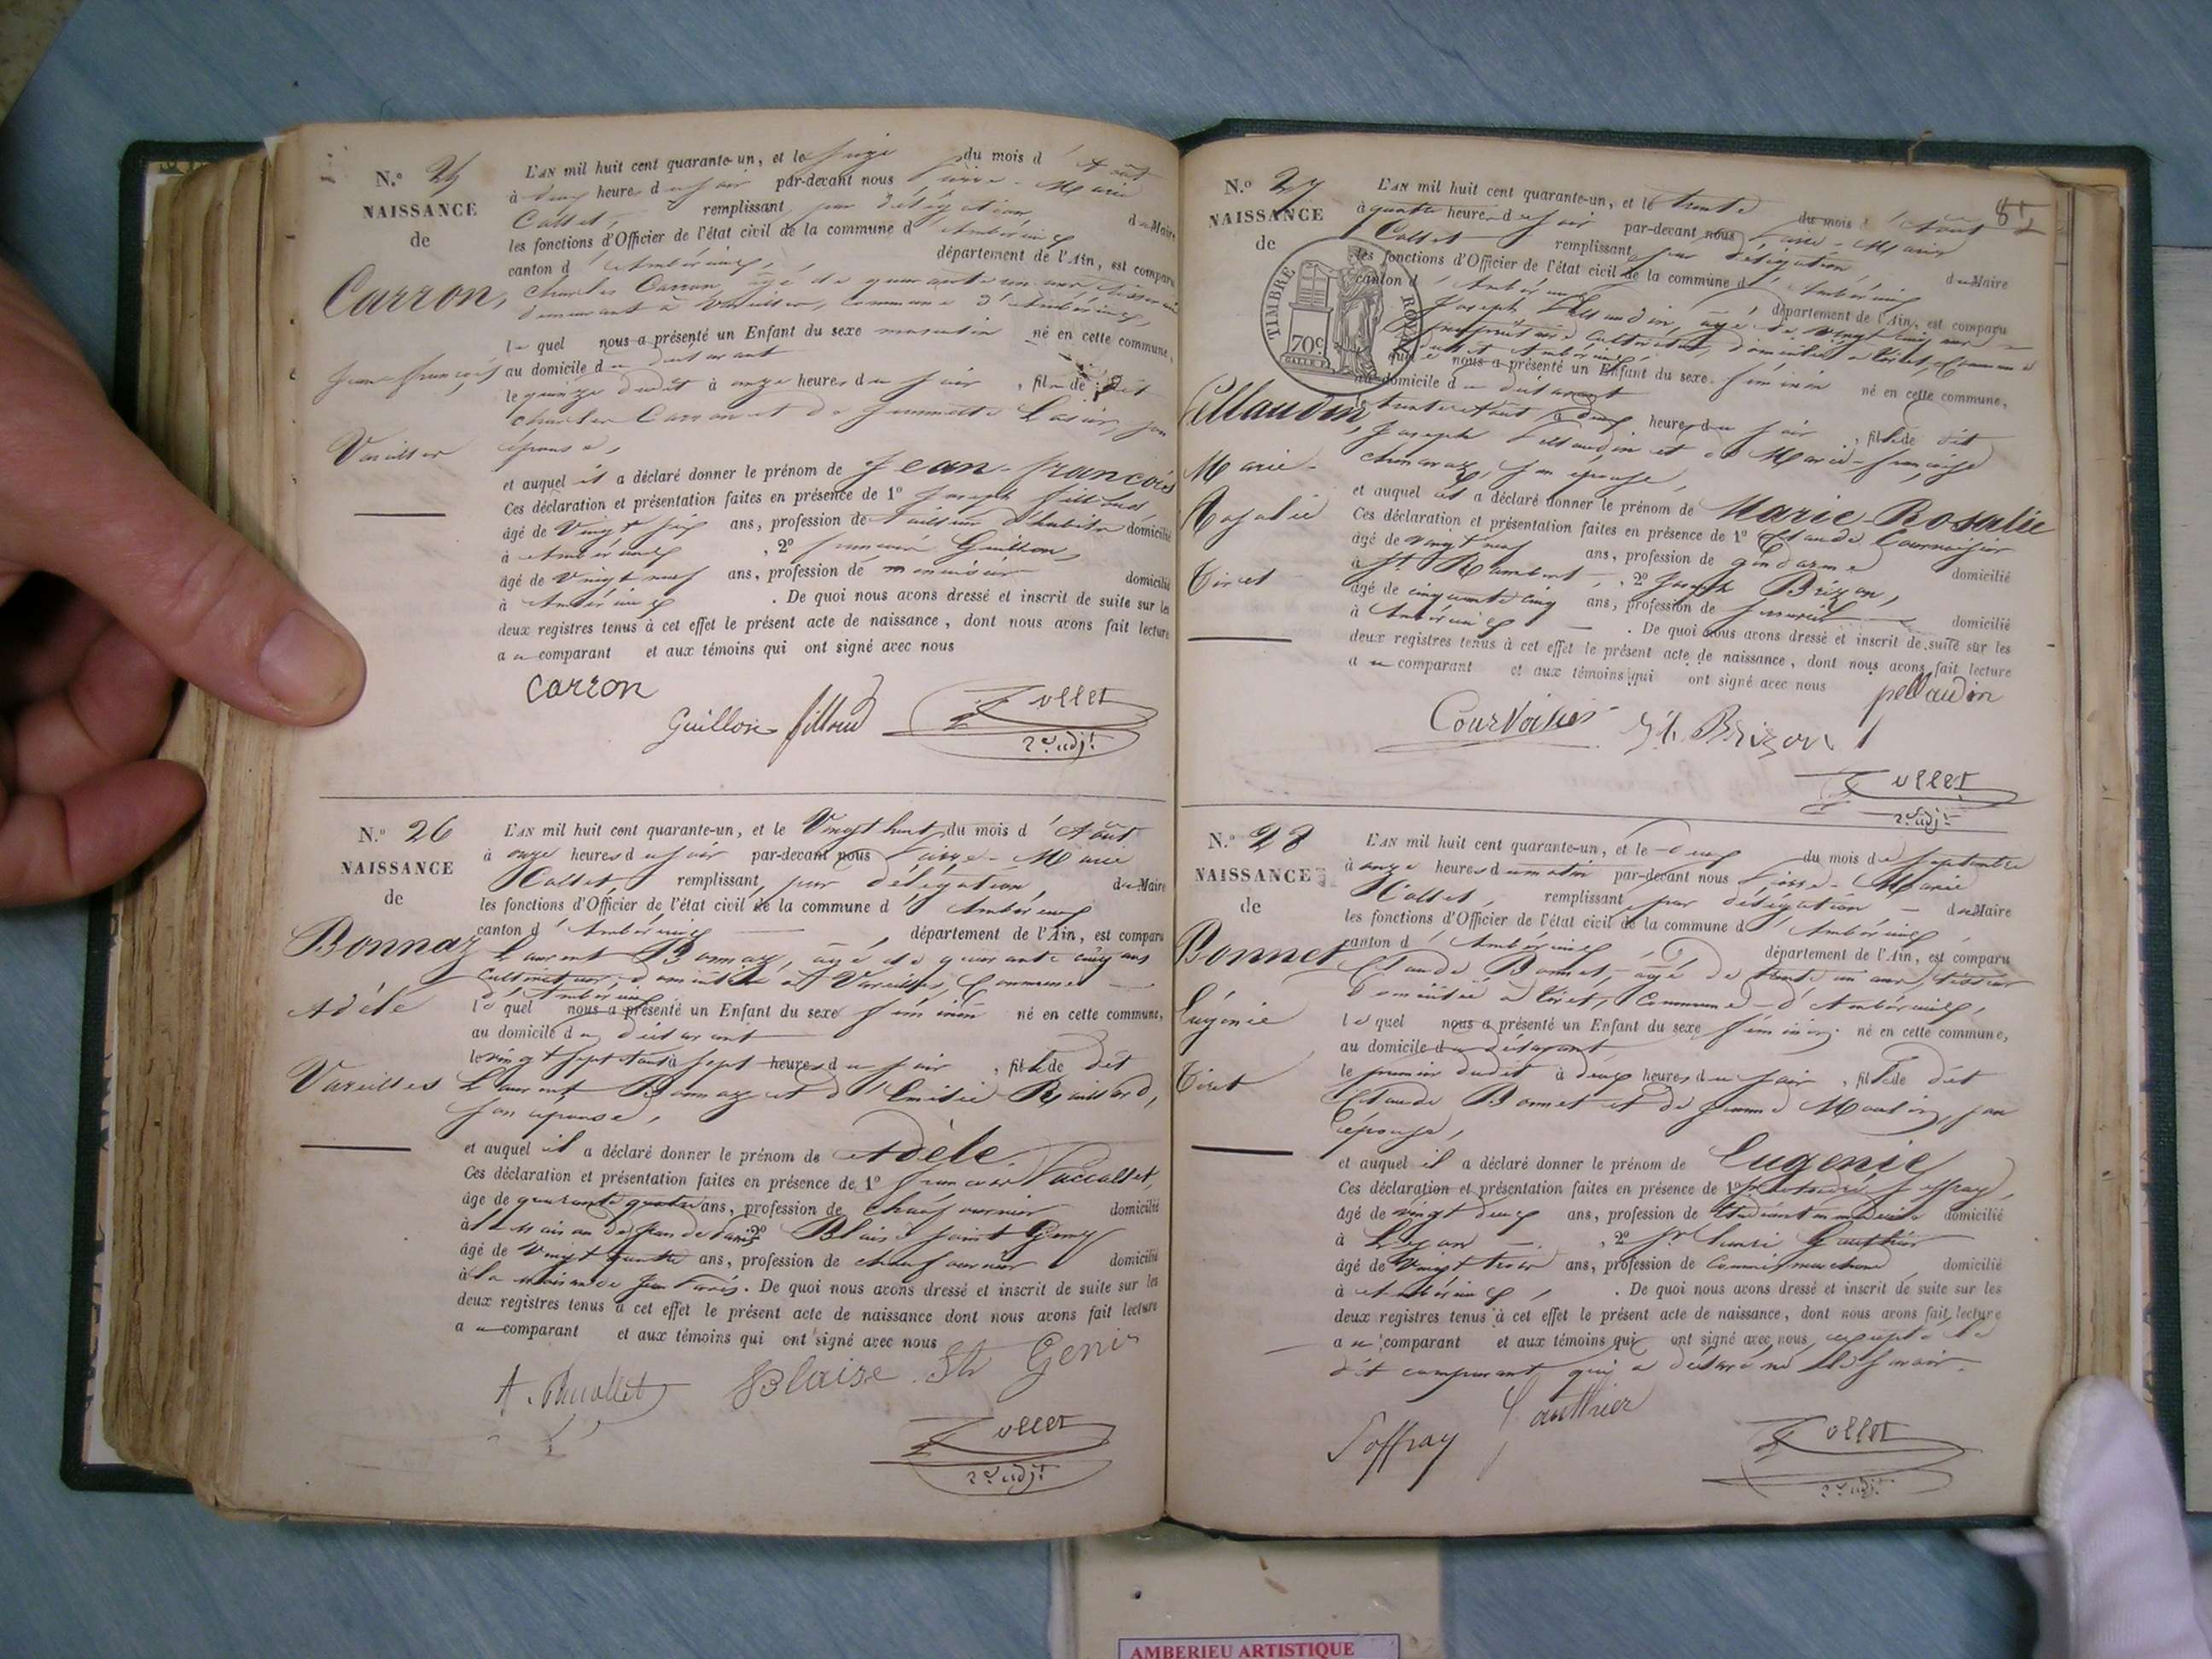 N.° 25
NAISSANCE
de
Carron,
Jean françois
Vareilles
L'AN mil huit cent quarante-un, et le seize du mois d'Août
à deux heures du soir par-devant nous Pierre-Marie
Collet, remplissant par délégation, du Maire
les fonctions d'Officier de l'état civil de la commune d'Ambérieux
canton d'Ambérieux, département de l'Ain, est comparu
Charles Carron, âgé de quarante un ans, tisserand
demeurant à Vareilles, commune d'Ambérieux,
lequel nous a présenté un Enfant du sexe masculin né en cette commune,
au domicile du déclarant
le quinze dudit à onze heures du soir, fils de dit
Charles Carron et de Jeannette son
épouse,
et auquel il a déclaré donner le prénom de Jean-françois
Ces déclaration et présentation faites en présence de 1° Joseph fillioud,
âgé de Vingt six ans, profession de Tailleur d'habits domicilié
à Ambérieux, 2° françois Guillon,
âgé de Vingt neuf ans, profession de menuisier domicilié
à Ambérieux. De quoi nous avons dressé et inscrit de suite sur les
deux registres tenus à cet effet le présent acte de naissance, dont nous avons fait lecture
au comparant et aux témoins qui ont signé avec nous
Carron
Guillon fillioud Collet
2e adjt
N.° 26
NAISSANCE
de
Bonnaz
Adèle
Vareilles
L'AN mil huit cent quarante-un, et le Vingt huit du mois d'Août
à onze heures du soir par-devant nous Pierre-Marie
Collet, remplissant par délégation, du Maire
les fonctions d'Officier de l'état civil de la commune d'Ambérieux
canton d'Ambérieux, département de l'Ain, est comparu
Laurent Bonnaz, âgé de quarante cinq ans
Cultivateur, domicilié à Vareilles, Commune
d'Ambérieux
lequel nous a présenté un Enfant du sexe féminin né en cette commune,
au domicile du déclarant
le vingt sept à sept heures du soir, fille de dit
Laurent Bonnaz et d'Emilie
son épouse,
et auquel il a déclaré donner le prénom de Adèle.
Ces déclaration et présentation faites en présence de 1° françois Paccallet,
âgé de quarante quatre ans, profession de Chaufournier domicilié
à la maison de 2° Blaise Saint Geny
âgé de Vingt quatre ans, profession de chaufournier domicilié
à la maison de. De quoi nous avons dressé et inscrit de suite sur les
deux registres tenus à cet effet le présent acte de naissance dont nous avons fait lecture
au comparant et aux témoins qui ont signé avec nous
Blaise St Genis
Collet
2e adjt
N.° 27
NAISSANCE
de
Pellaudin
Marie-
Rosalie
Tiret
85
TIMBRE ROYAL
70c
L'AN mil huit cent quarante-un, et le trente du mois d'Août
à quatre heures du soir par-devant nous Pierre-Marie
Collet remplissant par délégation du Maire
les fonctions d'Officier de l'état civil de la commune d'Ambérieux
canton d'Ambérieux, département de l'Ain, est comparu
Joseph Pellaudin, âgé de vingt cinq ans
propriétaire cultivateur, domicilié à Tiret, Commune
d'Ambérieux
quel nous a présenté un Enfant du sexe féminin né en cette commune,
au domicile du déclarant
le trente Août à deux heures du soir, fille de dit
Joseph Pellaudin et de Marie-françoise
son épouse,
et auquel il a déclaré donner le prénom de Marie-Rosalie
Ces déclaration et présentation faites en présence de 1° Claude Courvoisier
âgé de vingt neuf ans, profession de gendarme domicilié
à St Rambert, 2° Joseph Brizon,
âgé de cinquante cinq ans, profession de domicilié
à Ambérieux. De quoi nous avons dressé et inscrit de suite sur les
deux registres tenus à cet effet le présent acte de naissance, dont nous avons fait lecture
au comparant et aux témoins qui ont signé avec nous pellaudin
Courvoisier Brizon
Collet
2e adjt
N.° 28
NAISSANCE
de
Bonnet
Eugénie
Tiret
L'AN mil huit cent quarante-un, et le deux du mois de Septembre
à onze heures du matin par-devant nous Pierre-Marie
Collet, remplissant par délégation du Maire
les fonctions d'Officier de l'état civil de la commune d'Ambérieux
canton d'Ambérieux, département de l'Ain, est comparu
Claude Bonnet, âgé de trente un ans, tisseur
Domicilié à Tiret, Commune d'Ambérieux,
lequel nous a présenté un Enfant du sexe féminin né en cette commune,
au domicile du déclarant
le premier dudit à deux heures du soir, fille de dit
Claude Bonnet et de Jeanne Moulin, son
épouse,
et auquel il a déclaré donner le prénom de Eugénie
Ces déclaration et présentation faites en présence de 1° Joffray,
âgé de vingt deux ans, profession de Etudiant en médecine domicilié
à Lyon, 2° Gauthier
âgé de Vingt trois ans, profession de Commis marchand domicilié
à Ambérieux,. De quoi nous avons dressé et inscrit de suite sur les
deux registres tenus à cet effet le présent acte de naissance, dont nous avons fait lecture
au comparant et aux témoins qui ont signé avec nous, excepté le
dit comparant qui a déclaré ne le savoir.
Joffray Gauthier
Collet
2e adjt
AMBERIEU ARTISTIQUE